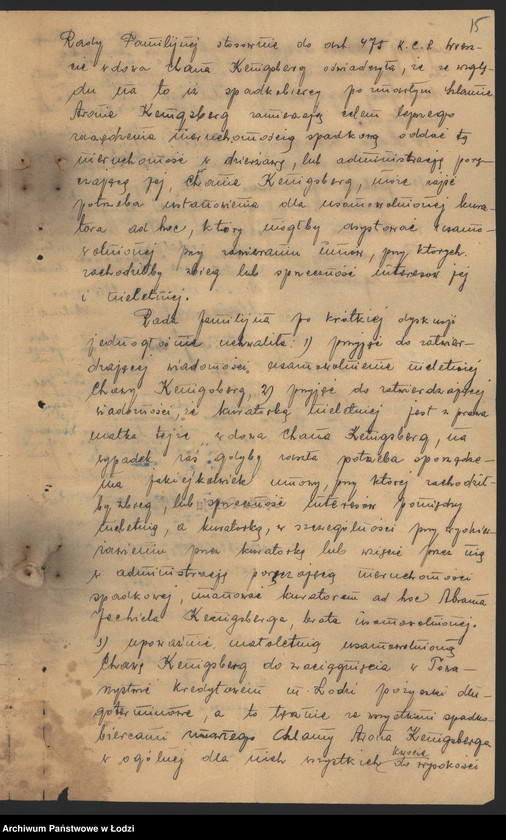 15
Rady Familijnej stosownie do art. 475 K.C.P. wresz-
cie wdowa Chana Kenigsberg oświadczyła, że ze wzglę-
du na to iż spadkobiercy po zmarłym Szlamie
Aronie Kenigsberg zamierzają celem lepszego
zarządzenia nieruchomością spadkową oddać tę
nieruchomość w dzierżawę, lub administrację porę-
czającą jej, Chanie Kenigsberg, może zajść
potrzeba ustanowienia dla usamowolnionej kura-
tora ad hoc, który mógłby asystować usamo-
wolnionej przy zawieraniu umów, przy których
zachodziłby zbieg lub sprzeczność interesów jej
i nieletniej.
Rada familijna po krótkiej dyskusji
jednogłośnie uchwaliła: 1) przyjąć do zatwier-
dzającej wiadomości, usamowolnienie nieletniej
Chawy Kenigsberg, 2) przyjąć do zatwierdzającej
wiadomości, że kuratorką nieletniej jest z prawa
matka tejże wdowa Chana Kenigsberg, na
wypadek zaś gdyby zaszła potrzeba sporządze-
nia jakiejkolwiek umowy, przy której zachodził-
by zbieg, lub sprzeczność interesów pomiędzy
nieletnią, a kuratorką, w szczególności przy wydzier-
żawieniu przez kuratorkę lub wzięcie przez nią
w administrację poręczającą nieruchomości
spadkowej, mianować kuratorem ad hoc Abrama
Jechiela Kenigsberga, brata usamowolnionej.
3) upoważnić małoletnią usamowolnioną
Chawę Kenigsberg do zaciągnięcia w Towa-
rzystwie Kredytowem m. Łodzi pożyczki dłu-
goterminowe, a to łącznie ze wszystkimi spadko-
biercami zmarłego Chlamy Arona Kenigsberga
w ogólnej dla nich wszystkich kwocie do wysokości
Archiwum Państwowe w Łodzi